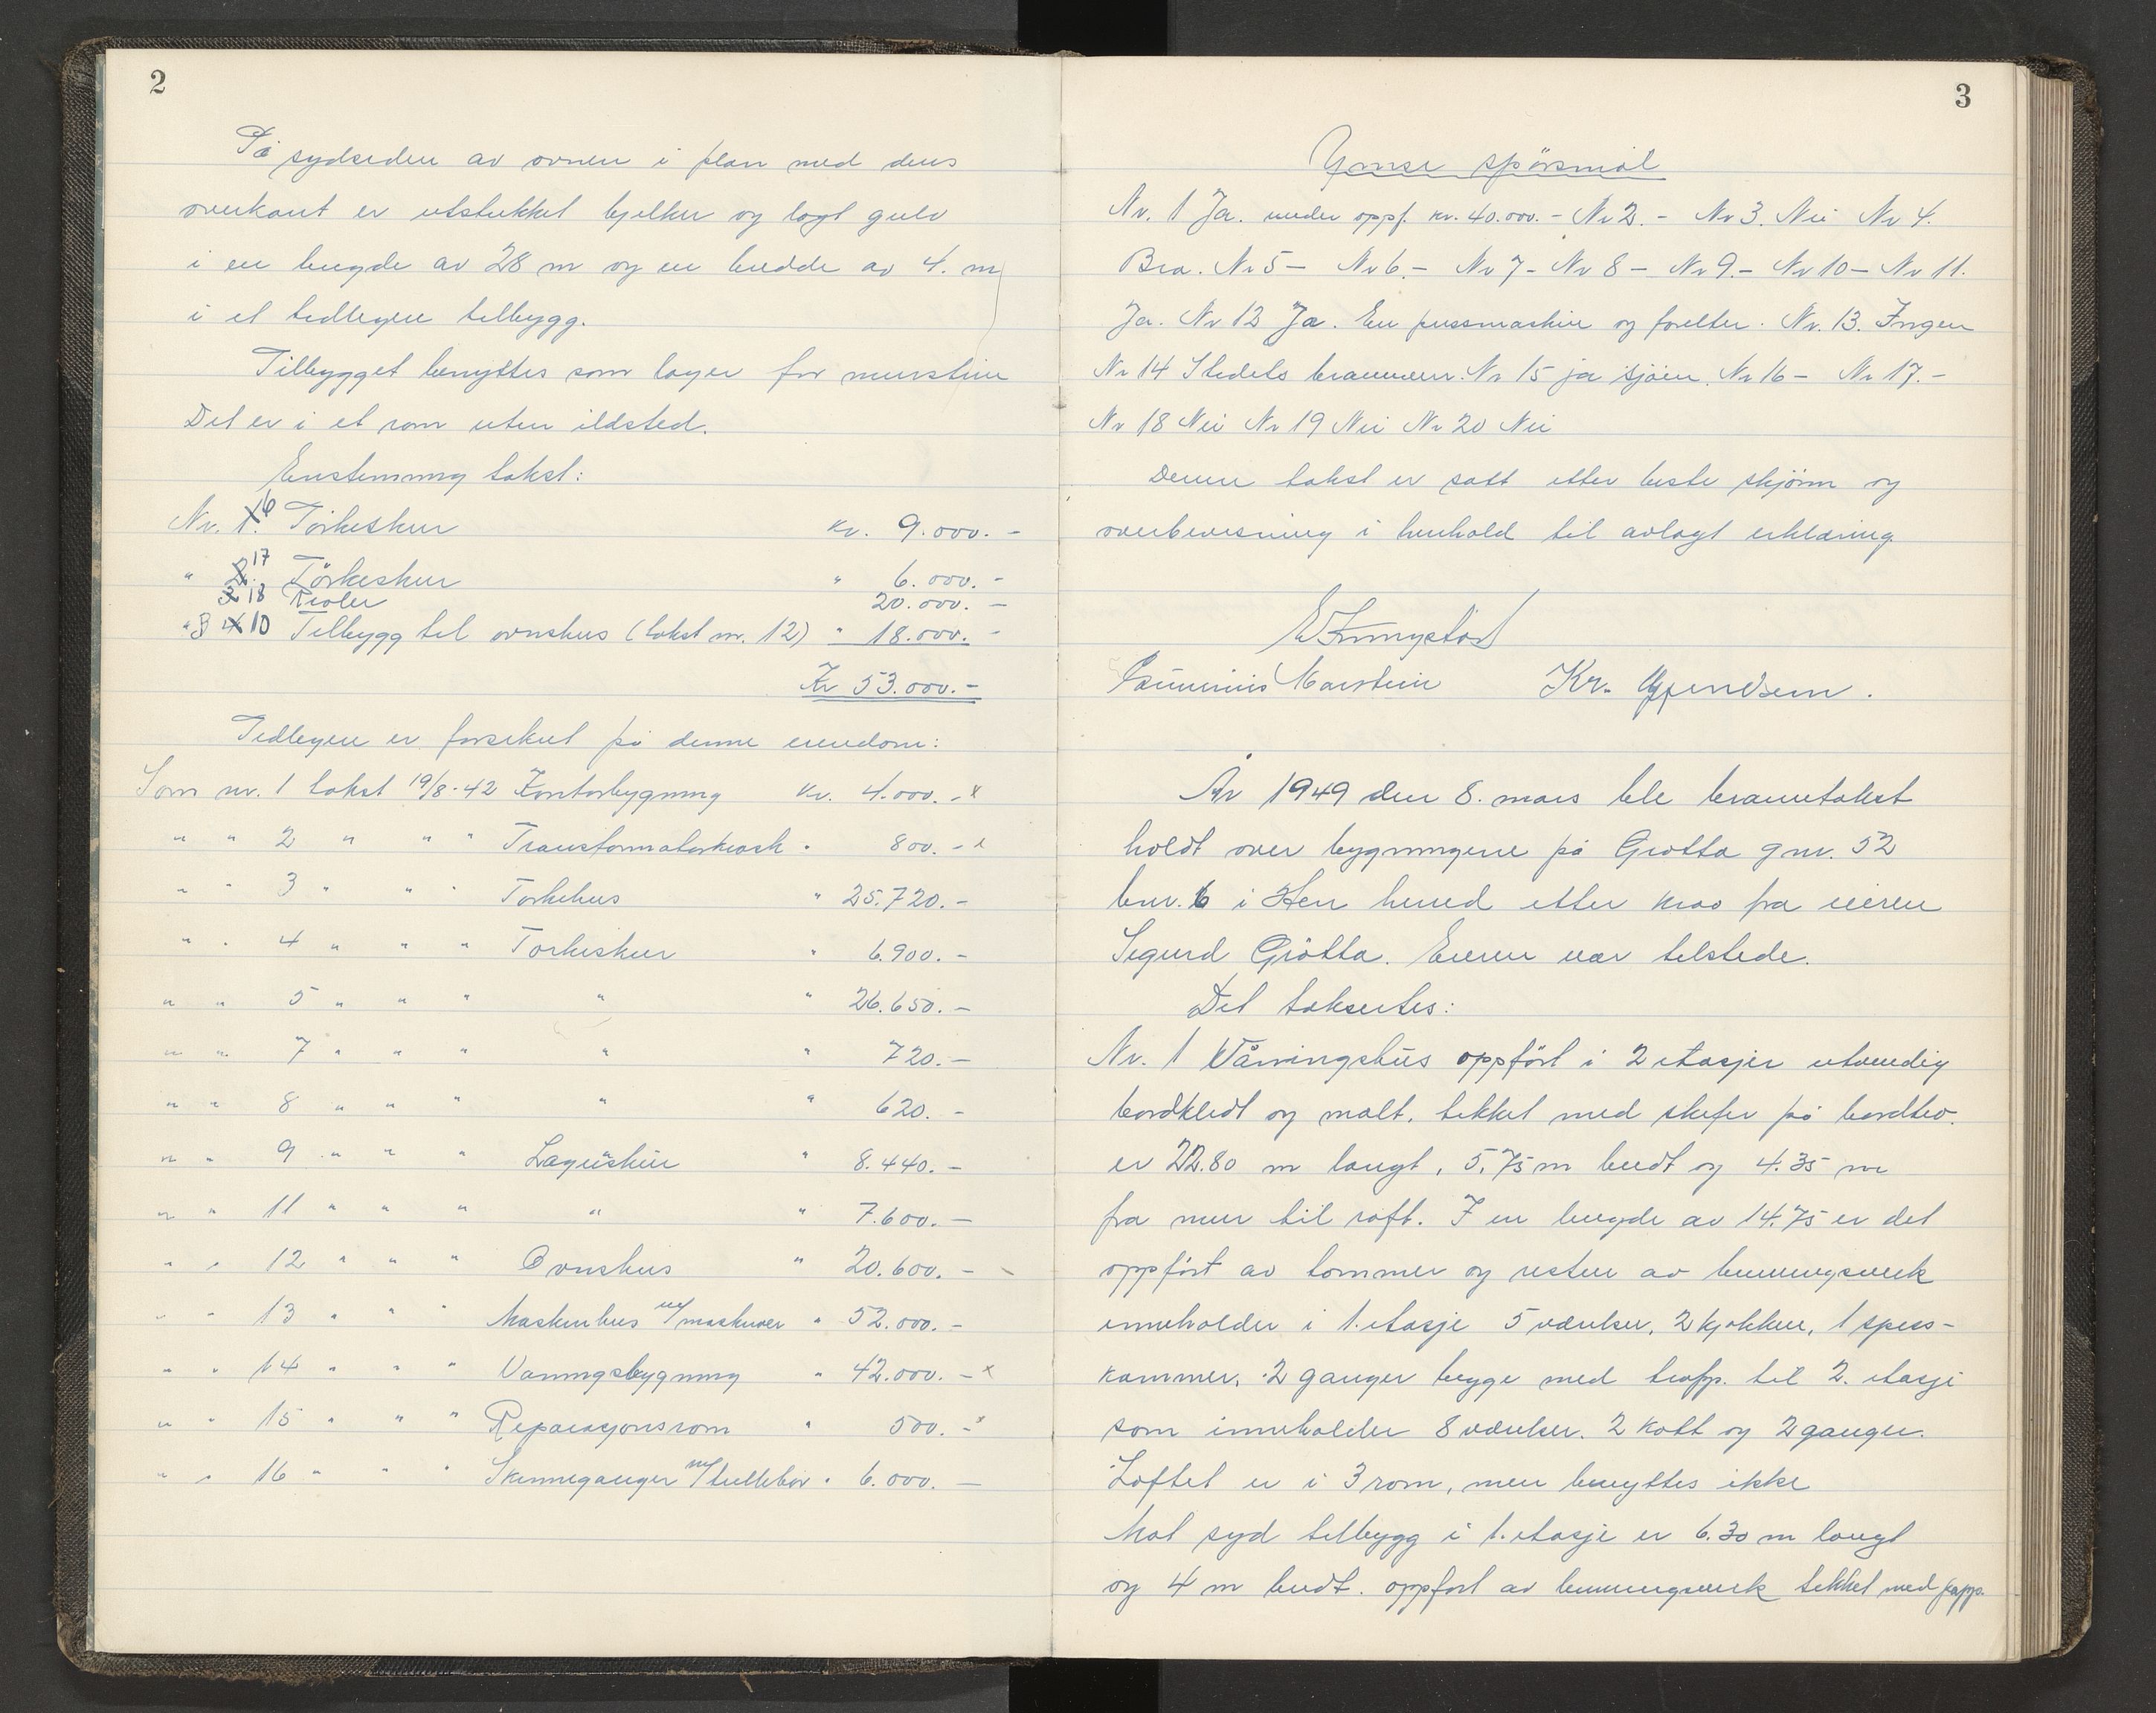 2
På sydsiden av ovnen i plan med dens
overkant er utstukket bjelker og lagt gulv
i en lengde av 28 m og en bredde av 4. m
i et tidligere tilbygg.
Tilbygget benyttes som lager for murstein
Det er i et rom uten ildsted.
Enstemmig takst:
Nr. 16 Törkeskur kr. 9.000.-
" 17 Törkeskur " 6.000.-
18 Reoler 20.000.-
"3 10 Tilbygg til ovnshus (takst nr. 12) " 18.000.-
Kr 53.000.-
Tidligere er forsikret på denne eiendom:
Som nr. 1 takst 19/8-42 Kontorbygning Kr. 4.000.-x
" " 2 " " " Transformatorkiosk " 800.-x
" " 3 " " " Torkehus " 25.720.-
" " 4 " " " Torkeskur " 6.900.-
" " 5 " " " " " 26.650.-
" " 7 " " " " " 720.-
" " 8 " " " " " 620.-
" " 9 " " " Lagerskur " 8.440.-
" " 11 " " " " " 7.600.-
" " 12 " " " Ovnshus " 20.600.-
" " 13 " " " Maskinhus m/maskiner " 52.000.-
" " 14 " " " Vaningsbygning " 42.000.-x
" " 15 " " " Reparasjonsrom " 500.-x
" " 16 " " " Skinneganger m/trillebör " 6.000.-
3
Ymse spörsmål
Nr. 1 Ja. under oppf. kr. 40.000.- Nr 2.- Nr 3. Nei Nr 4.
Bra. Nr 5- Nr 6.- Nr 7- Nr 8- Nr 9.- Nr 10- Nr 11.
Ja. Nr 12 Ja. En pussmaskin og forelter. Nr. 13. Ingen
Nr 14 Stedets brannvern. Nr 15 ja sjöen. Nr 16- Nr 17.-
Nr 18 Nei Nr 19 Nei Nr 20 Nei
Denne takst er satt etter beste skjönn og
overbevisning i henhold til avlagt erklæring
Marstein Kr.
År 1949 den 8. mars ble branntakst
holdt over bygningene på Grotta gnr. 52
bnr. 6 i Hen herred etter krav fra eieren
Sigurd Grötta. Eieren var tilstede.
Det takseertes:
Nr. 1 Våningshus oppfört i 2 etasjer utvendig
bordkledt og malt. tekket med skifer på bordtro.
er 22.80 m langt, 5.75 m bredt og 4.35 m
fra mur til raft. I en lengde av 14.75 er det
oppfört av tommer og resten av bindingsverk
inneholder i 1. etasje 5 værelser, 2 kjokken, 1 speis-
kammer, 2 ganger begge med trapp. til 2. etasje
som inneholder 8 værelser. 2 kott og 2 ganger.
Loftet er i 3 rom, men benyttes ikke
Mot syd tilbygg i 1. etasje er 6.30 m langt
og 4 m bredt. oppfort av bindingsverk tekket med papp.